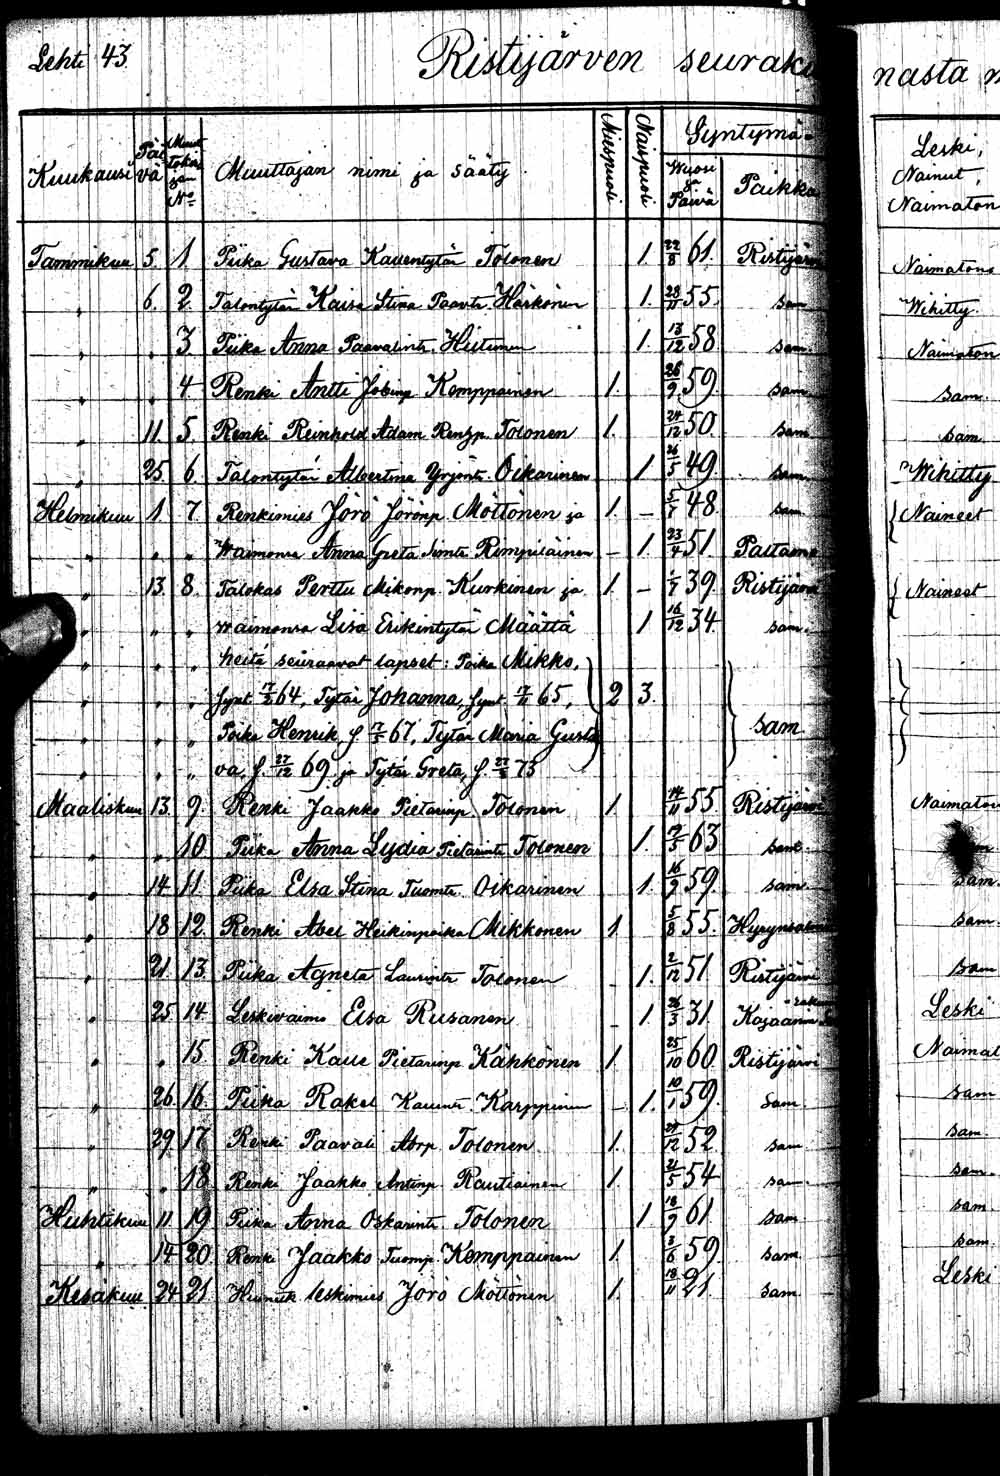 Lehti 43. Ristijärven seuraku nasta m
Kuukausi Päivä Muuttokirjan No Muuttajan nimi ja sääty Miespuoli Naispuoli Syntymä- Wuosi ja Päivä Paikka Leski, Nainut, Naimaton
Tammikuu 5. 1. Piika Gustava Kauentytär Tolonen 1. 22/8 61. Ristijärvi Naimatons
" 6. 2. Talontytär Kaisa Stina Paavtr. Härkönen 1. 28/11 55. sam Wihitty.
" " 3. Piika Anna Paavalintr. Hiitunen 1. 13/12 58. sam. Naimaton
" " 4 Renki Antti Kemppainen 1. 26/9 59. sam. sam.
" 11. 5. Renki Reinhold Adam Tolonen 1. 24/12 50. sam sam
" 25. 6. Talontytär Albertina Yrjöntr. Oikarinen 1 26/5 49. sam. Wihitty
Helmikuu 1. 7. Renkimies Jörö Jörönp. Möttönen ja 1. – 5/7 48. sam. Naineet
" " " Waimonsa Anna Greta Rimpiläinen – 1. 23/4 51 Paltamo
" 13. 8. Talokas Perttu Mikonp. Kurkinen ja 1 – 1/7 39. Ristijärvi Naineet
" " " waimonsa Liisa Erikintytär Määttä 1 16/12 34. sam.
" " " heitä seuraavat lapset: Poika Mikko,
" " " synt. 17/2 64, Tytär Johanna, synt. 17/11 65, 2 3.
" " " Poika Henrik s. 17/5 67, Tytär Maria Gusta sam
" " " va, s. 27/12 69 ja Tytär Greta, s. 27/2 73
Maaliskuu 13. 9. Renki Jaakko Pietarinp. Tolonen 1. 14/11 55. Ristijärvi Naimaton
" " 10 Piika Anna Lydia Pietarintr Tolonen 1. 17/5 63 sam
" 14. 11. Piika Elsa Stina Tuomtr. Oikarinen 1. 16/9 59. sam. sam.
" 18 12. Renki Abel Heikinpoika Mikkonen 1. 5/8 55. Hyrynsalmi sam.
" 21 13. Piika Agneta Laurintr Tolonen 1. 2/12 51 Ristijärvi sam
" 25. 14. Leskivaimo Elsa Rusanen 1. 26/3 31 Kajaanin Leski
" " 15. Renki Kalle Pietarinp Kähkönen 1. 25/10 60 Ristijärvi Naimat
" 26. 16. Piika Rakel Kauntr. Karppinen – 1. 10/1 59. sam. sam
" 29. 17 Renki Paavali Abrp Tolonen 1. 27/12 52. sam sam.
" " 18. Renki Jaakko Antinp. Rautiainen 1. 21/5 54 sam. sam.
Huhtikuu 11 19 Piika Anna Oskarintr. Tolonen 1 18/9 61 sam sam.
" 14 20. Renki Jaakko Tuomp. Kemppainen 1. 3/6 59. sam. sam.
Kesäkuu 24 21 leskimies Jörö Möttönen 1. 18/11 21. sam. Leski